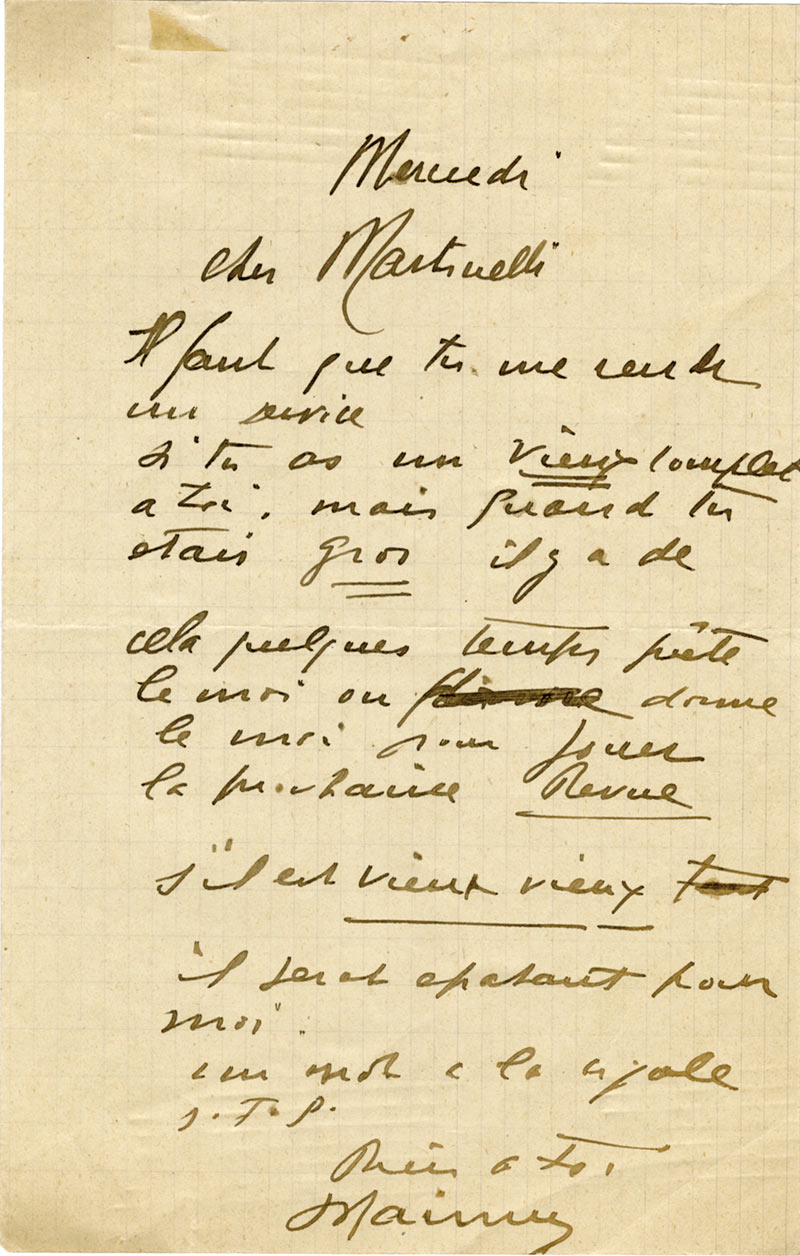 Mercredi
cher Martinelli
Il faut que tu me rende
un service
si tu as un vieux complet
a toi, mais quand tu
etais gros il y a de
cela quelques temps prête
le moi ou donne
le moi pour jouer
la prochaine Revue
s'il est vieux vieux
il serat epatant pour
moi.
un mot a la cigale
s.T.P.
Bien a toi